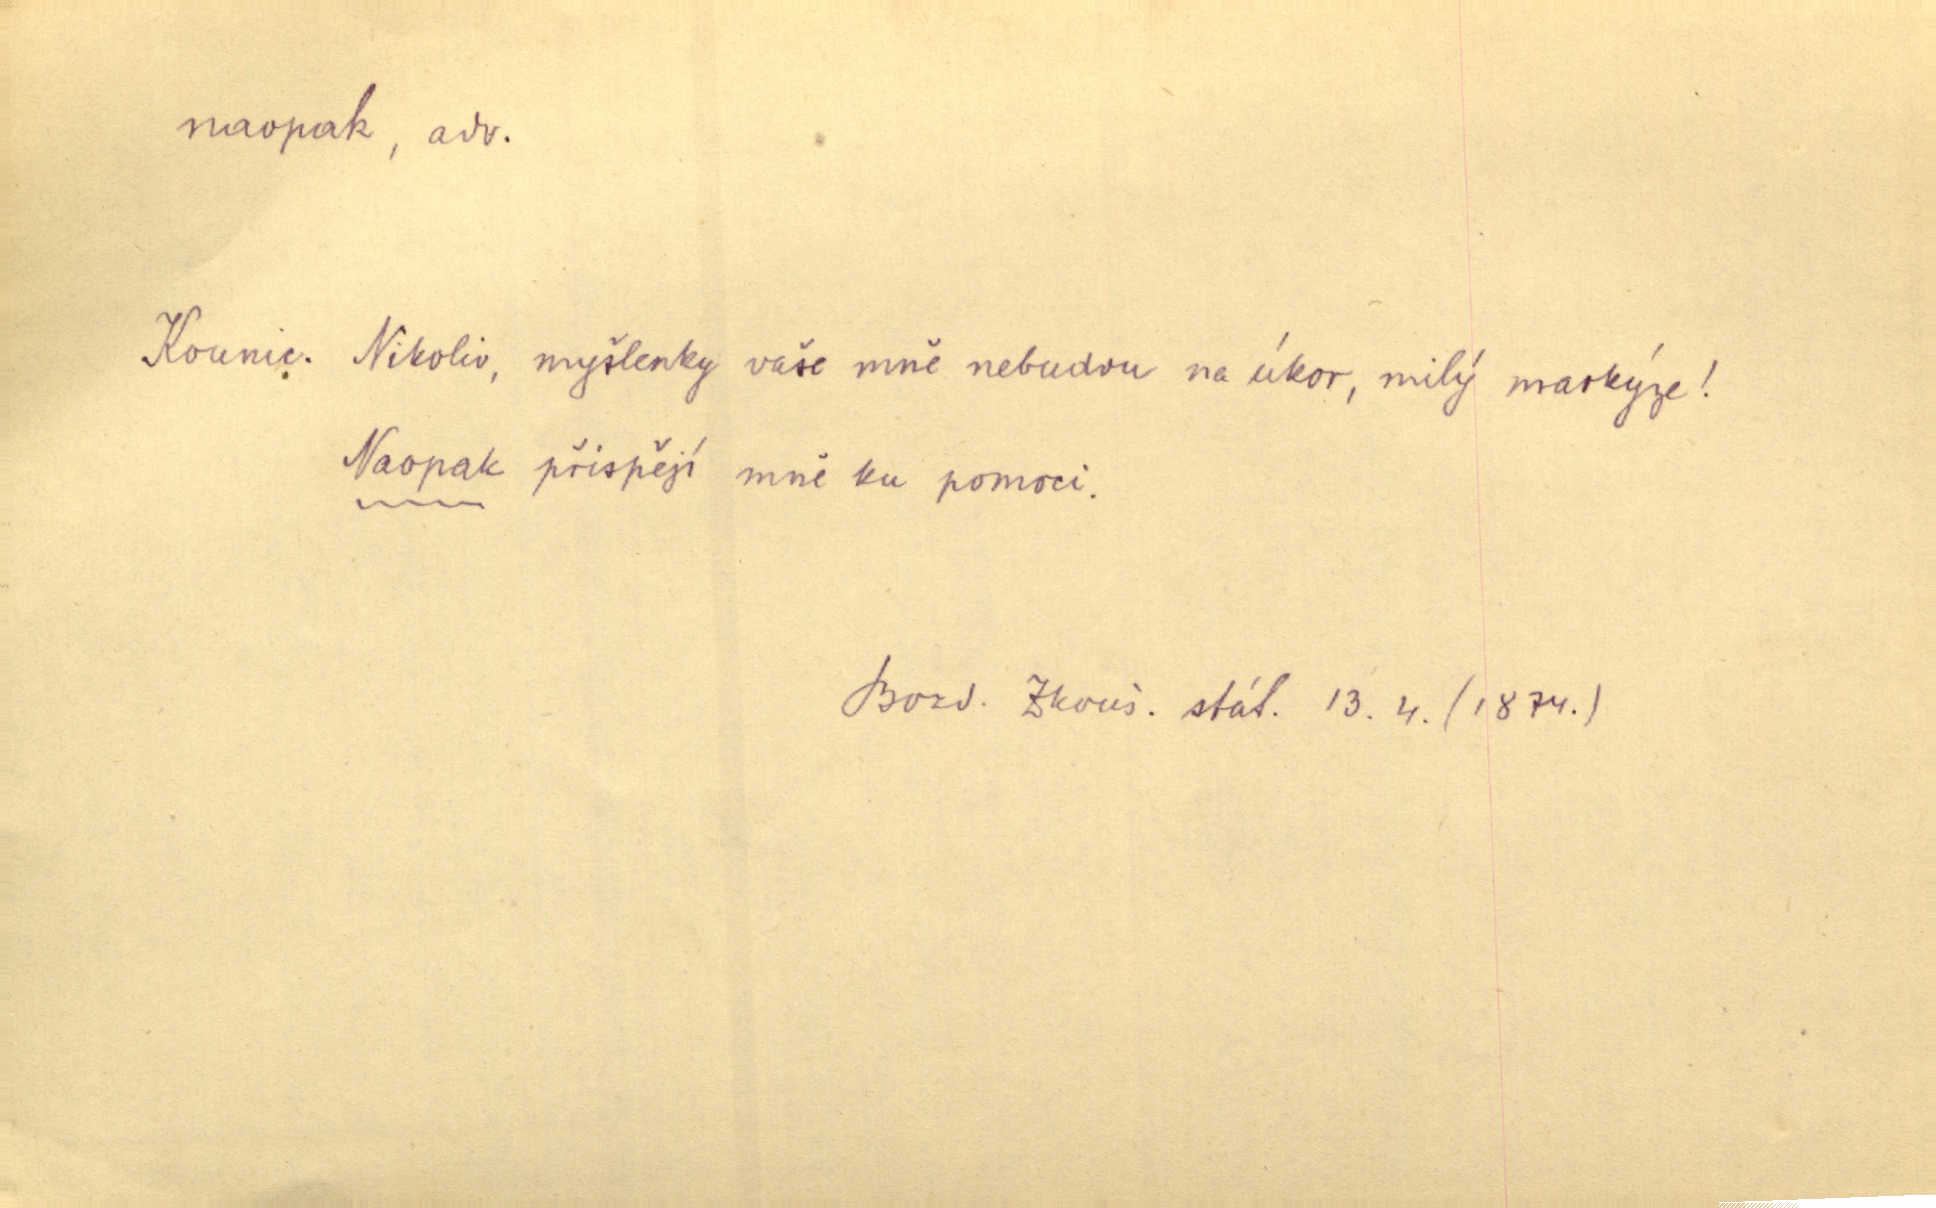 naopak, adv.
Kounic. Nikoliv, myšlenky vaše mně nebudou na úkor, milý markýze!
Naopak přispějí mně ku pomoci.
Bozd. Zkouš. stát. 13. 4. (1874.)